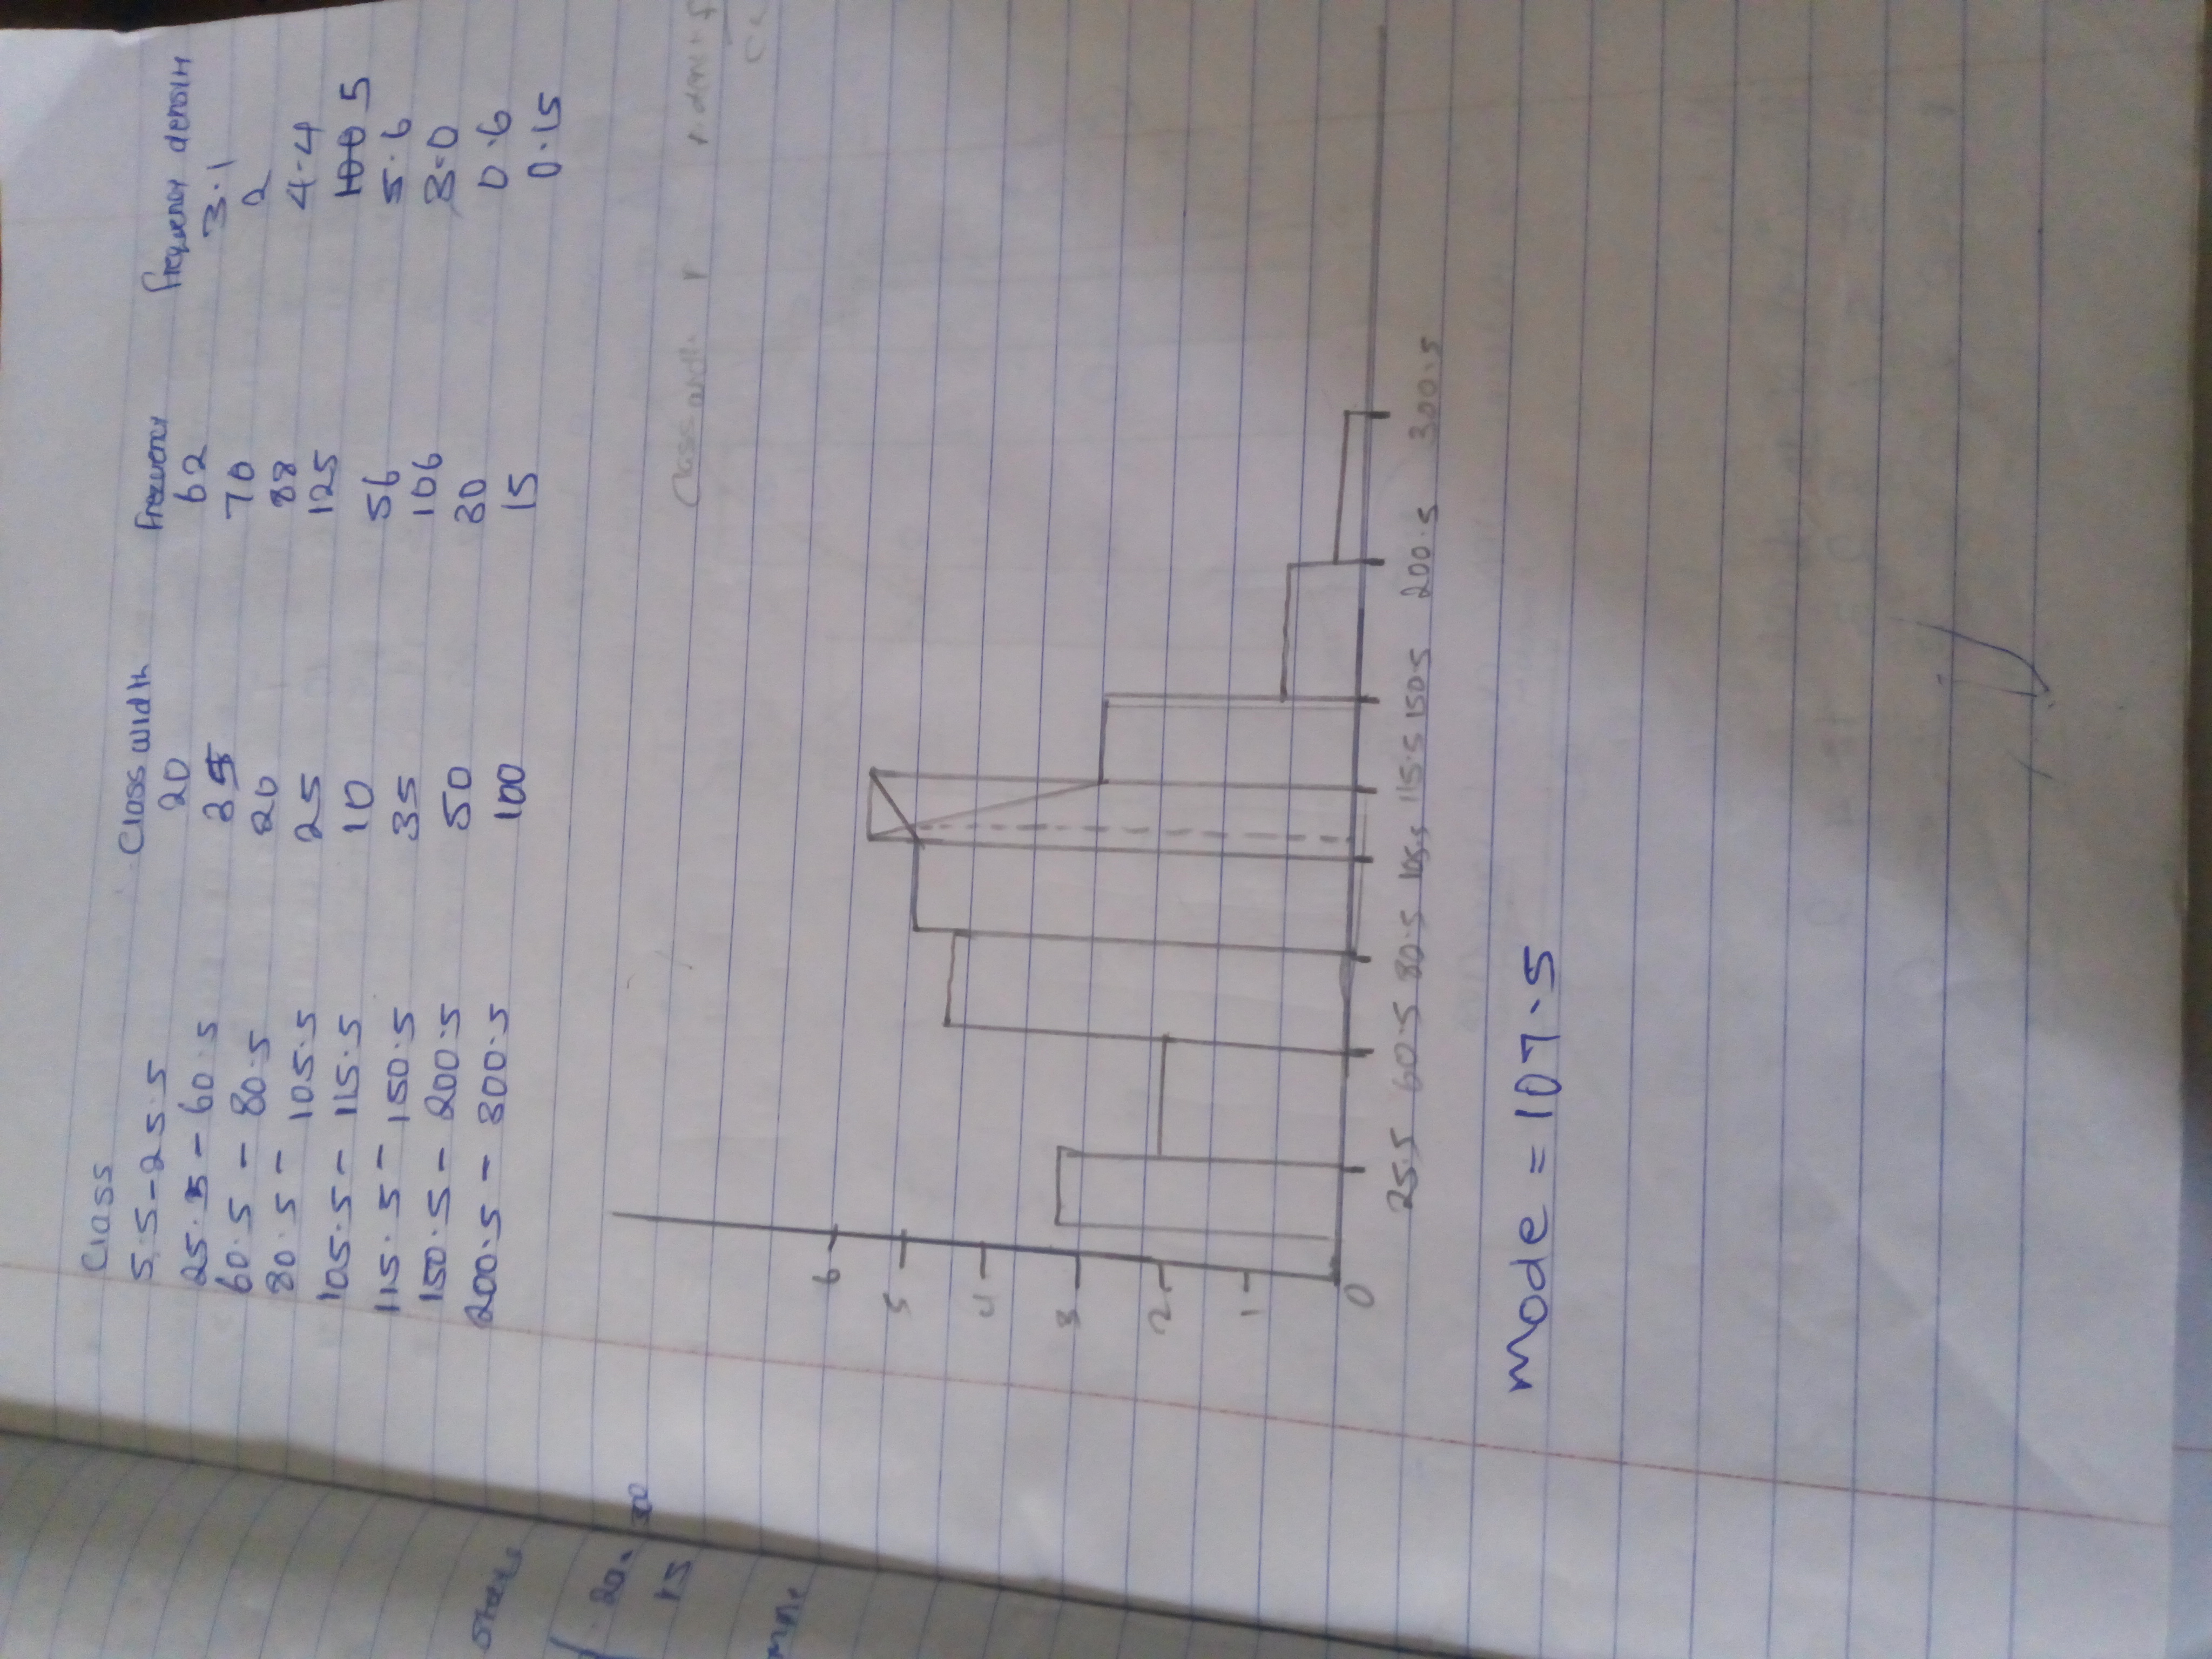 Class Class width Frequency frequency density
5.5-25.5 20 62 3.1
25.5 - 60.5 35 70 2
60.5 - 80.5 20 88 4.4
80.5 - 105.5 25 125 100 5
105.5 - 115.5 10 56 5.6
115.5 - 150.5 35 106 3.0
150.5 - 200.5 50 30 0.6
200.5 - 300.5 100 15 0.15
20
300
15
Class width
6
5
4
3
2
1
0
25.5 60.5 80.5 105.5 115.5 150.5 200.5 300.5
Mode = 107.5